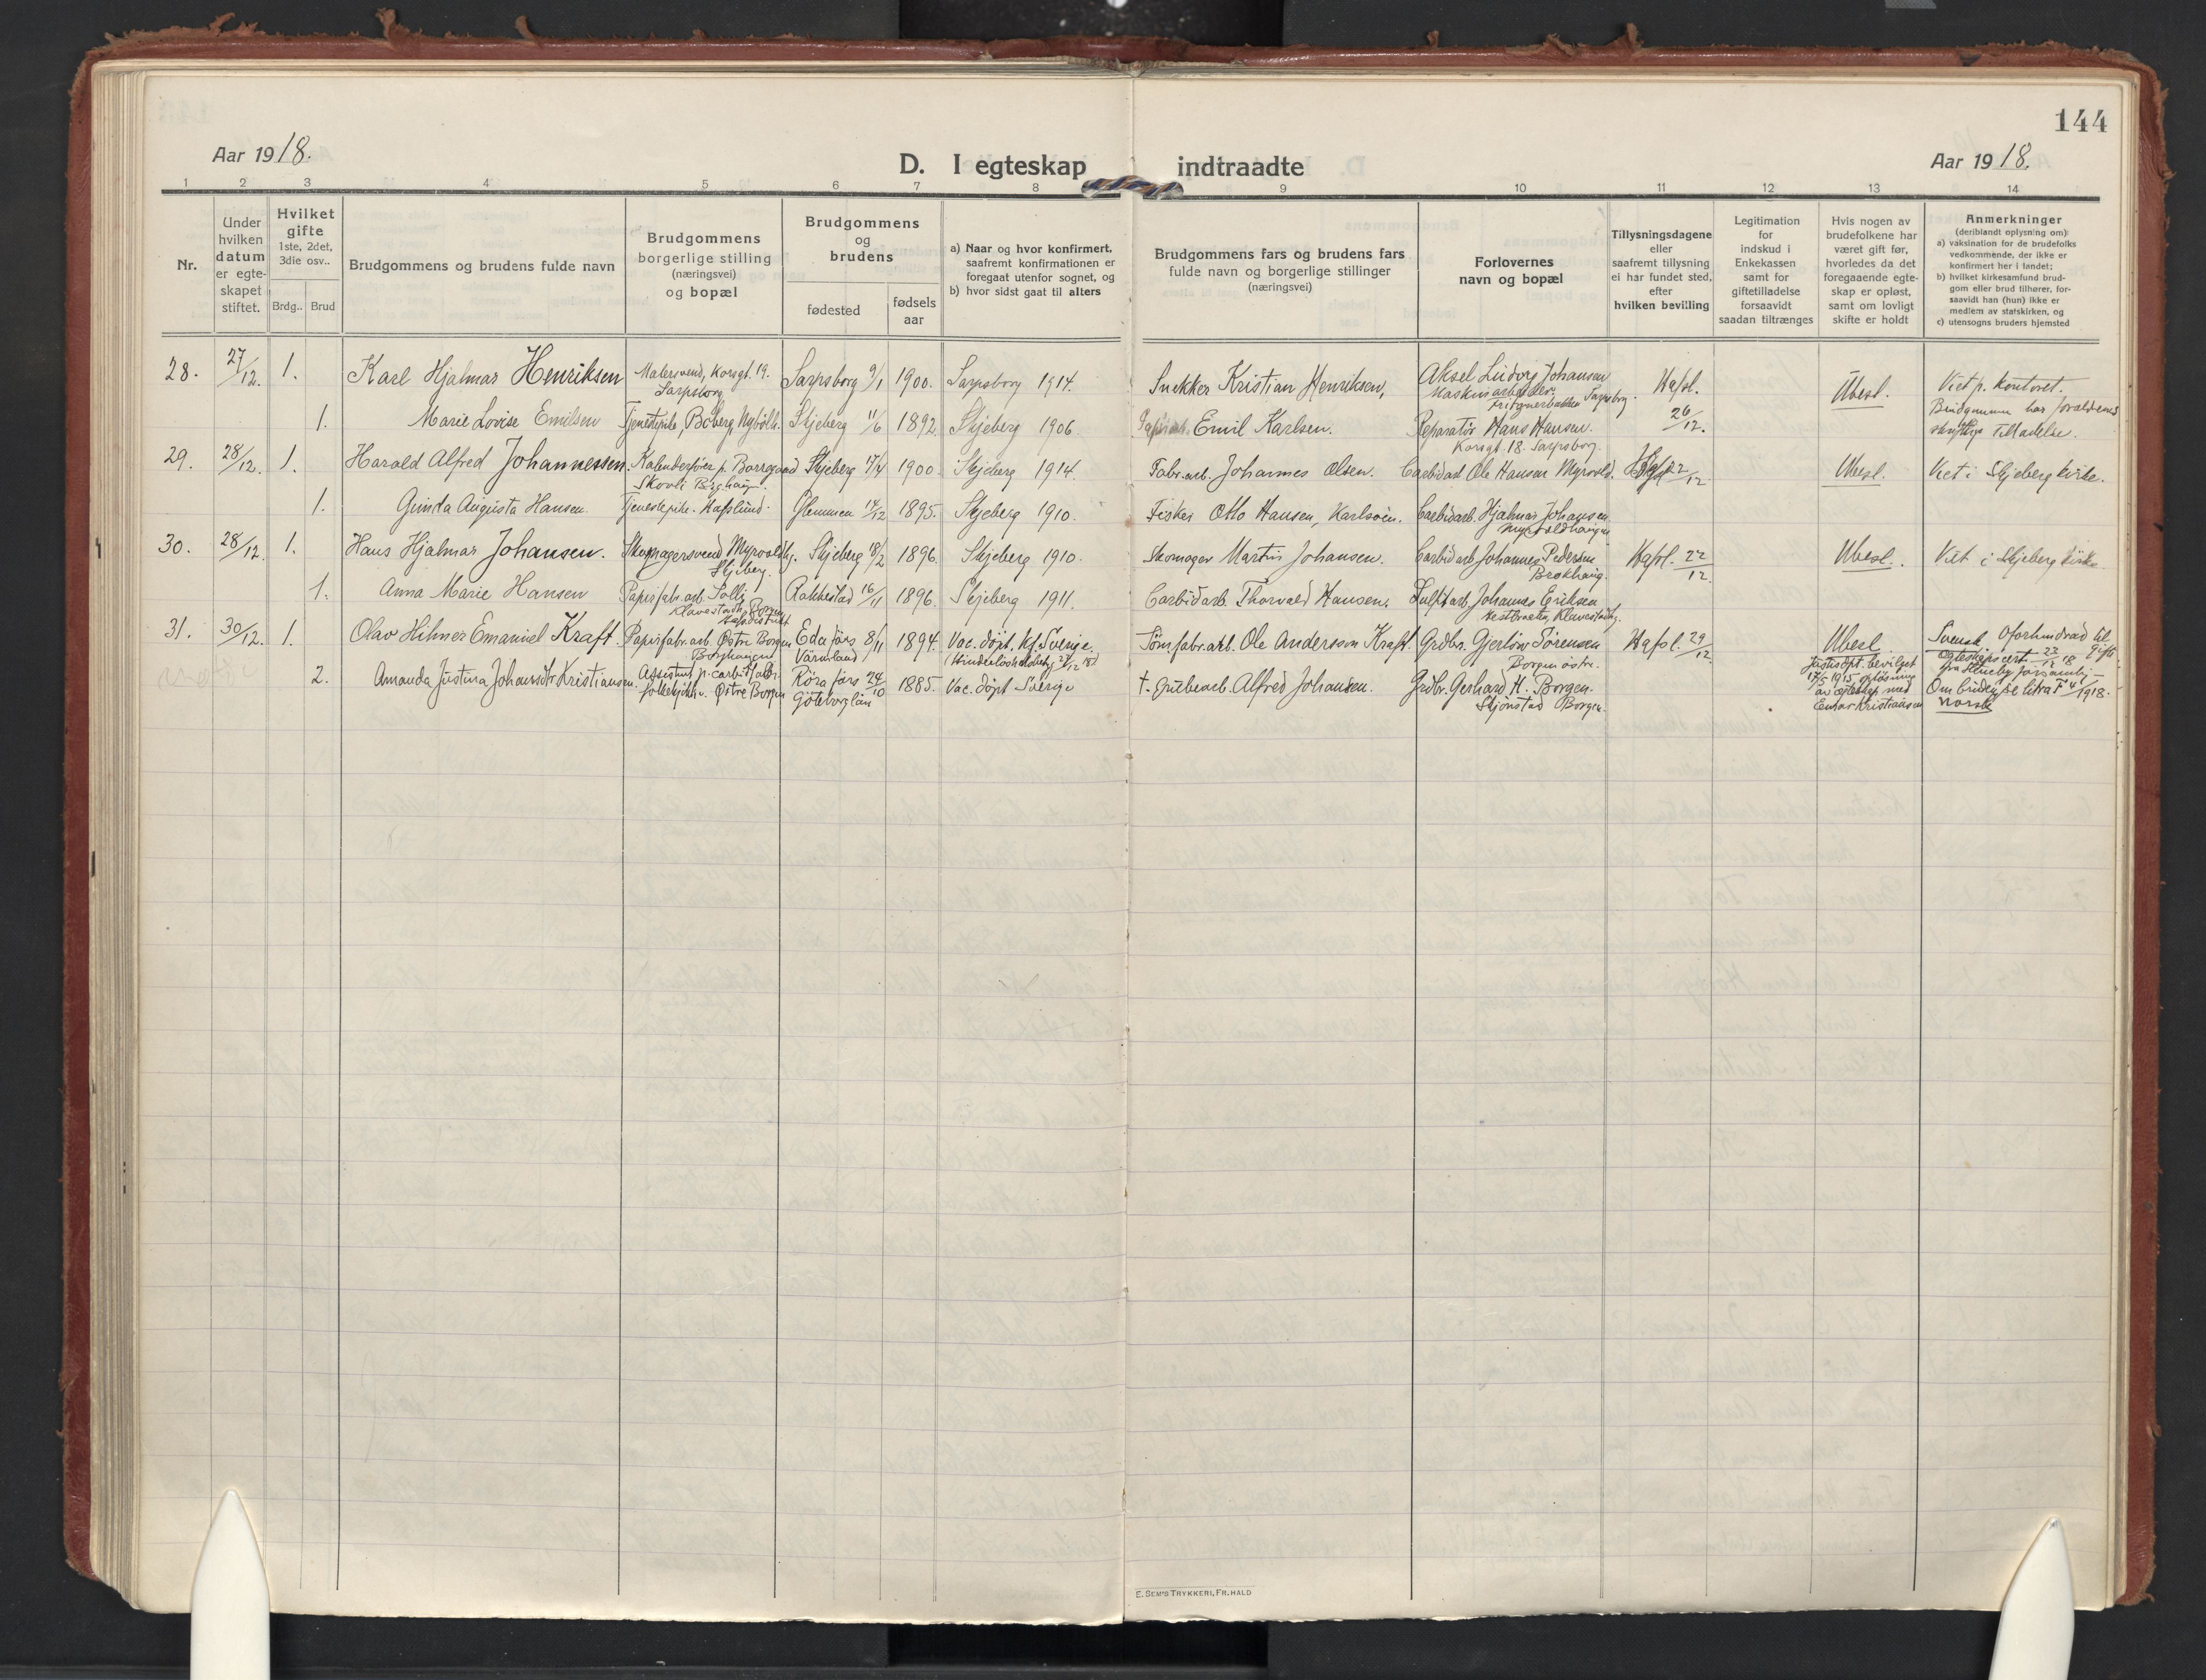 144
Aar 1918.
D. I egteskap indtraadte
Aar 1918.
1 2 3 4 5 6 7 8 9 10 11 12 13 14
Nr.
Under hvilken datum er egte-skapet stiftet.
Hvilket gifte
1ste, 2det, 3die osv..
Brdg.. Brud
Brudgommens og brudens fulde navn
Brudgommens borgerlige stilling (næringsvei) og bopæl
Brudgommens og brudens
fødested
fødsels aar
a) Naar og hvor konfirmert, saafremt konfirmationen er foregaat utenfor sognet, og
b) hvor sidst gaat til alters
Brudgommens fars og brudens fars fulde navn og borgerlige stillinger (næringsvei)
Forlovernes navn og bopæl
Tillysningsdagene eller saafremt tillysning ei har fundet sted, efter hvilken bevilling
Legitimation for indskud i Enkekassen samt for giftetilladelse forsaavidt saadan tiltrænges
Hvis nogen av brudefolkene har været gift før, hvorledes da det foregaaende egte-skap er opløst, samt om lovligt skifte er holdt
Anmerkninger
(deriblandt oplysning om):
a) vaksination for de brudefolks vedkommende, der ikke er konfirmert her i landet;
b) hvilket kirkesamfund brud-gom eller brud tilhører, for-saavidt han (hun) ikke er medlem av statskirken, og
c) utensogns bruders hjemsted
28. 27/12. 1. Karl Hjalmar Henriksen Malersvend, Korsgt. 19. Sarpsborg Sarpsborg 9/1 1900. Sarpsborg 1914. Snekker Kristian Henriksen, Aksel Ludvig Johansen Maskinarbeider. Sarpsborg. Hafsl. 26/12. Ubesl. Viet p. kontoret.
1. Marie Lovise Emilsen Tjenestepike, Boberg, Skjeberg 11/6 1892. Skjeberg 1906. Emil Karlsen. Reparatør Hans Hansen. Korsgt. 18. Sarpsborg. Brudgommen har forældrenes skriftlige Tilladelse.
29. 28/12. 1. Harald Alfred Johannessen. p. Borregaard Skovli Skjeberg 17/4 1900. Skjeberg 1914. Fabr.arb. Johannes Olsen. Carbidarb. Ole Hansen Myrvold. Hafsl. 22/12. Ubesl. Viet i Skjeberg kirke.
1. Gunda Augusta Hansen. Tjenestepike. Hafslund. Glemmen 14/12 1895. Skjeberg 1910. Fisker Otto Hansen, Karlsøen. Carbidarb. Hjalmar Johansen Myrvoldhaugen
30. 28/12. 1. Hans Hjalmar Johansen. Skomagersvend Skjeberg. Skjeberg 18/2 1896. Skjeberg 1910. Skomager Martin Johansen. Carbidarb Johannes Pedersen Hafsl. 22/12. Ubesl. Viet i Skjeberg kirke.
1. Anna Marie Hansen Papirfabr. arb. Solli, Rakkestad 16/11 1896. Skjeberg 1911. Carbidarb. Thorvald Hansen. Johannes Eriksen
31. 30/12. 1. Olav Hilmer Emanuel Kraft Papirfabr. arb. Østre Borgen Borghaugen Eda förs Värmland 8/11 1894. Vac. døpt. kf. Sverige. Sømfabr.arb. Ole Andersson Kraft. Grdbr. Gjerløw Sørensen Borgen østre. Hafsl. 29/12. Ubesl Svensk
2. Amanda Justina Johansdtr Kristiansen. Assistent p. carbidfabr. Østre Borgen Röra förs Göteborg län 24/10 1885. Vac. døpt Sverige † Grubearb. Alfred Johansen. Grdbr. Gerhard H. Borgen. Borgen. Justisdpt. bevilget 17/5 1915 opløsning av egteskap med Einar Kristiansen Om bruden se litra F 4/1918. norsk
E. SEM'S TRYKKERI, FR. HALD